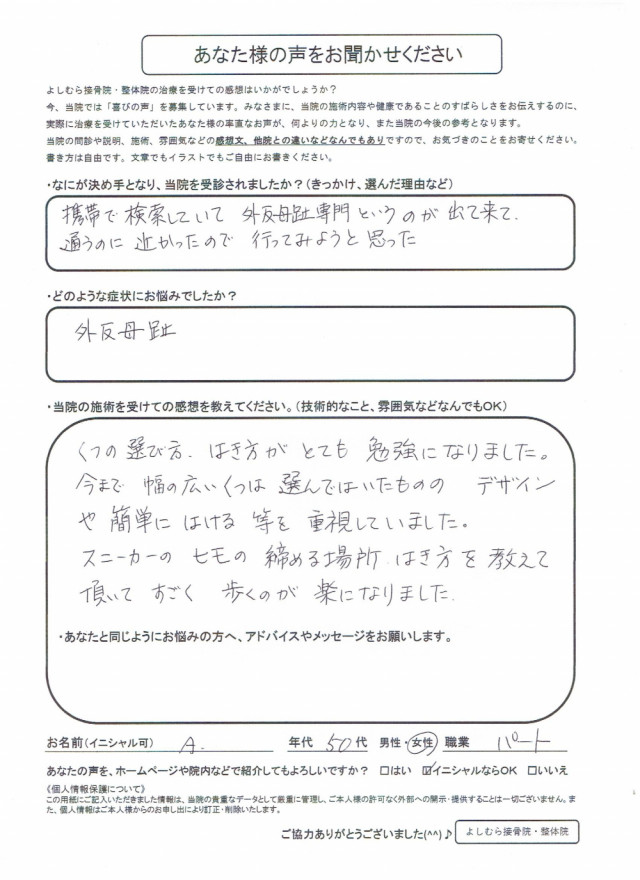 あなた様の声をお聞かせください
よしむら接骨院・整体院の治療を受けての感想はいかがでしょうか？
今、当院では「喜びの声」を募集しています。みなさまに、当院の施術内容や健康であることのすばらしさをお伝えするのに、
実際に治療を受けていただいたあなた様の率直なお声が、何よりの力となり、また当院の今後の参考となります。
当院の問診や説明、施術、雰囲気などの感想文、他院との違いなどなんでもありですので、お気づきのことをお寄せください。
書き方は自由です。文章でもイラストでもご自由にお書きください。
・なにが決め手となり、当院を受診されましたか？(きっかけ、選んだ理由など)
携帯で検索していて 外反母趾専門というのが出て来て、
通うのに近かったので 行ってみようと思った
・どのような症状にお悩みでしたか？
外反母趾
・当院の施術を受けての感想を教えてください。(技術的なこと、雰囲気などなんでもOK)
くつの選び方、はき方が とても 勉強になりました。
今まで 幅の広いくつは 選んではいたものの デザイン
や 簡単に はける 等を 重視していました。
スニーカーの ヒモの 締める場所、はき方を 教えて
頂いて すごく 歩くのが 楽になりました。
・あなたと同じようにお悩みの方へ、アドバイスやメッセージをお願いします。
お名前(イニシャル可) A. 年代 50代 男性・女性 職業 パート
あなたの声を、ホームページや院内などで紹介してもよろしいですか？ □はい ☑イニシャルならOK □いいえ
《個人情報保護について》
この用紙にご記入いただきました情報は、当院の貴重なデータとして厳重に管理し、ご本人様の許可なく外部への開示・提供することは一切ございません。ま
た、個人情報はご本人様からのお申し出により訂正・削除いたします。
ご協力ありがとうございました(^^)♪ よしむら接骨院・整体院